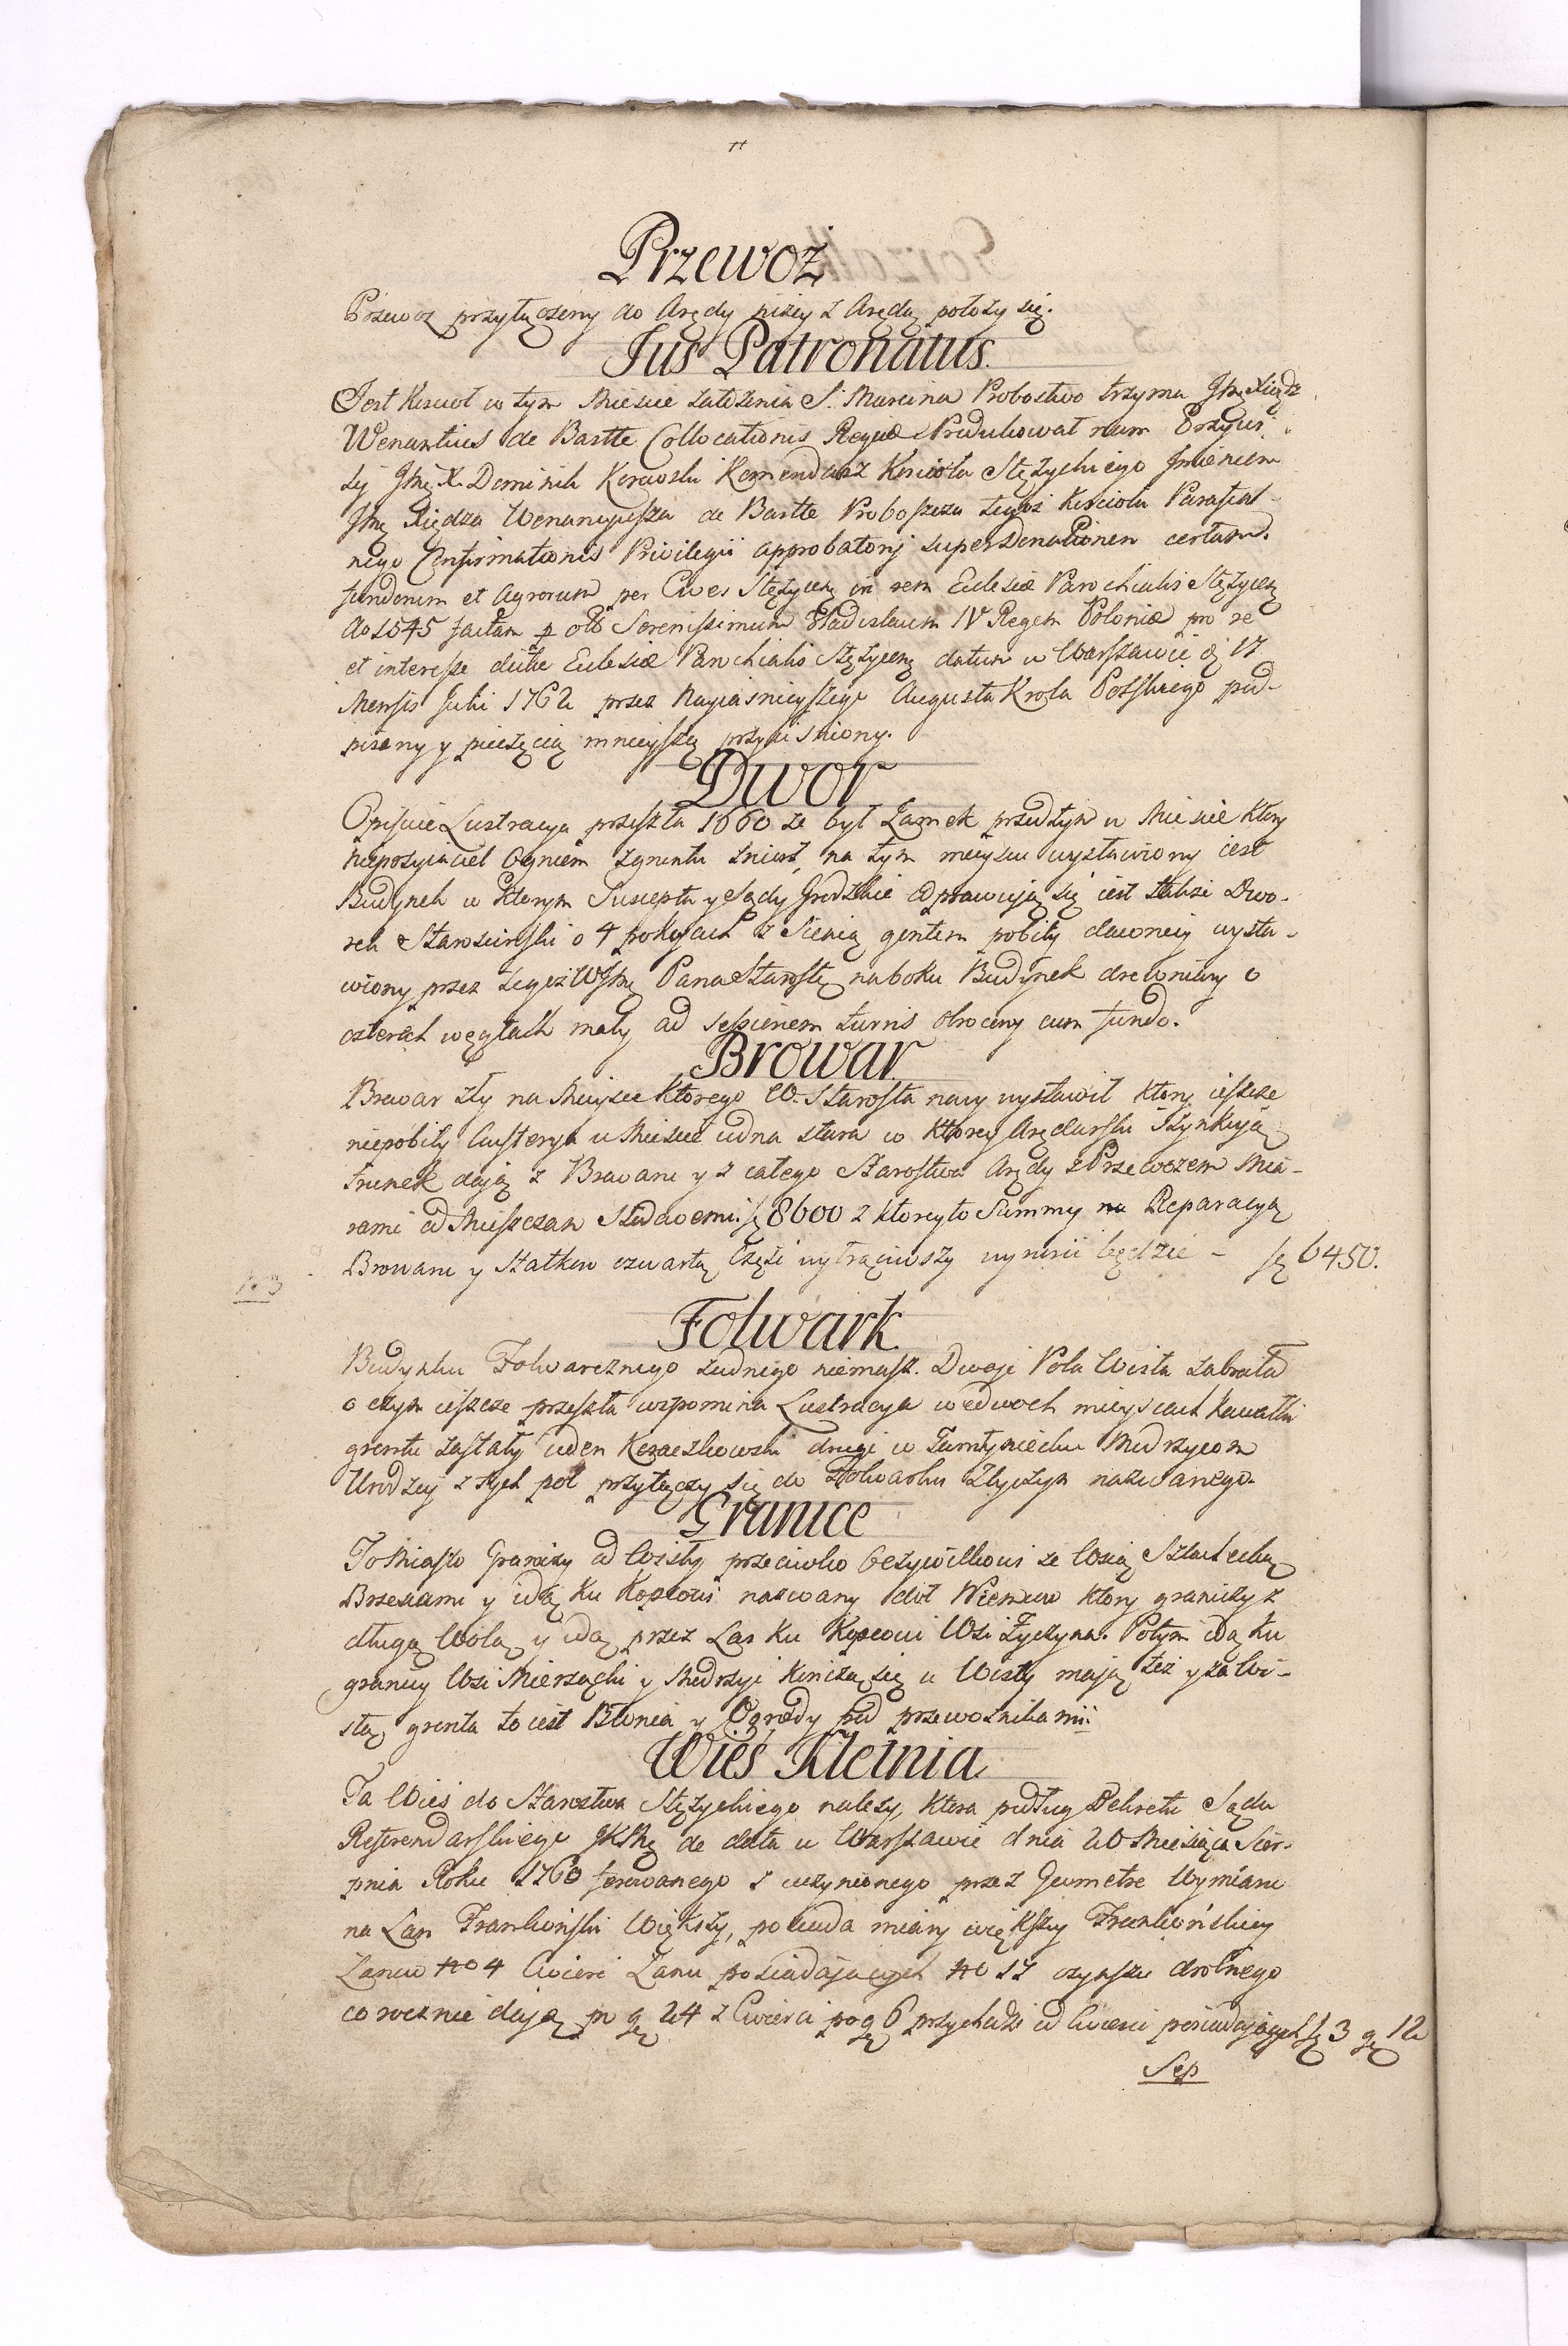 Przewoz
Przewoz przyłączony do Arędy niżey z Arędą położy się.
Jus Patronatus.
Jest Koscioł w tym Miescie załozenia S. Marcina Probostwo trzyma Jmę Xiądz
Wenantius de Bastte Collocationis Regiæ Produkował nam Przyws
ły Jmę X. Dominik Komendarz Koscioła Stężyckiego Jmieniem
Jmę Xiędza Wenancyusza de Bastte Proboszcza tegoż Koscioła Parafial-
nego Confirmationis Privilegii approbatorij super Donationem certam.
fundorum et Agrorum per Cives Stężycens in rem Eclesiæ Parochialis Stężycens
Ao 1645 factam p olb Serenissimum Vladislaum IV Regem Poloniæ pro re
et interesse dictæ Eclesiæ Parochialis Stężycens datum w Warszawie d 17
Mensis Julii 1762 przez Nayiasnieyszego Augusta Krola Polskiego pod-
pisany y pieczęcią mnieyszą przycisniony.
Dwor
Opisuie Lustracya przeszła 1660 ze był Zamek przedtym w Miescie ktory
Nieprzyiaciel Ogniem zgruntu zniosł, na tym mieyscu wystawiony iest
Budynek w ktorym Suscepta y Sądy Grodzkie odprawuią się iest także Dwo-
rek Starosciński o 4 pokojach z Sienią gontem pobity dawniey wysta-
wiony przez tegoż WJmę Pana Starostę na boku Budynek drewniany o
czterech węgłach mały ad sessionem turris obrocony cum fundo.
Browar
Browar zły na Mieysce ktorego W. Starosta nowy wystawił ktory ieszcze
niepobity Austerya w Miescie iedna stara w ktorey Arędarski szynkuią
trunek daią z Browaru y z całego Starostwa Arędy z Przewozem Mia-
rami od Mieszczan Słodowemi fl 8600 z ktoreyto Summy na Reparacyą
Browaru y Statkow czwartą Częsc wytrąciwszy wynosić będzie - fl 6450.
Folwark
Budynku Folwarcznego żadnego niemasz. Dwoje Pola Wisła zabrała
o czym ieszcze przeszła wspomina Lustracya w dwoch mieyscach kawałki
gruntu zostały ieden drugi w
Urodzey z tych pol przyłączy się do Folwarku Zyczyn nazwanego.
Granice
To Miasto Graniczy od Wisły przeciwko Bezywilkowi ze Wsią Szlachecką
Brzezcami y idą ku Kopcowi nazwany doł ktory graniczy z
długą Wolą y idą przez Las ku Kopcowi Wsi Zyczyna. Potym idą ku
granicy Wsi Mierzączki y kończą się u Wisły mają też y za Wi-
słą grunta to iest Błonia y Ogrody pod przewoznikami.
Wieś Kletnia
Ta Wieś do Starostwa Stężyckiego należy, ktora podług Dekretu Sądu
Referendarskiego JKMę de data w Warszawie dnia 20 Miesiąca Sier-
pnia Roku 1760 ferowanego z uczynionego przez Geometrę Wymiaru
na Łan Frankoński Większy, posiada miary większey Frankońskiey
Łanow No 4 Cwierci Łanu posiadaiących No 17 czynszu drobnego
corocznie daią po gr 24 z Cwierci po gr 6 przychodzi od Cwierci posiadaiących fl 3 gr 12
Sep